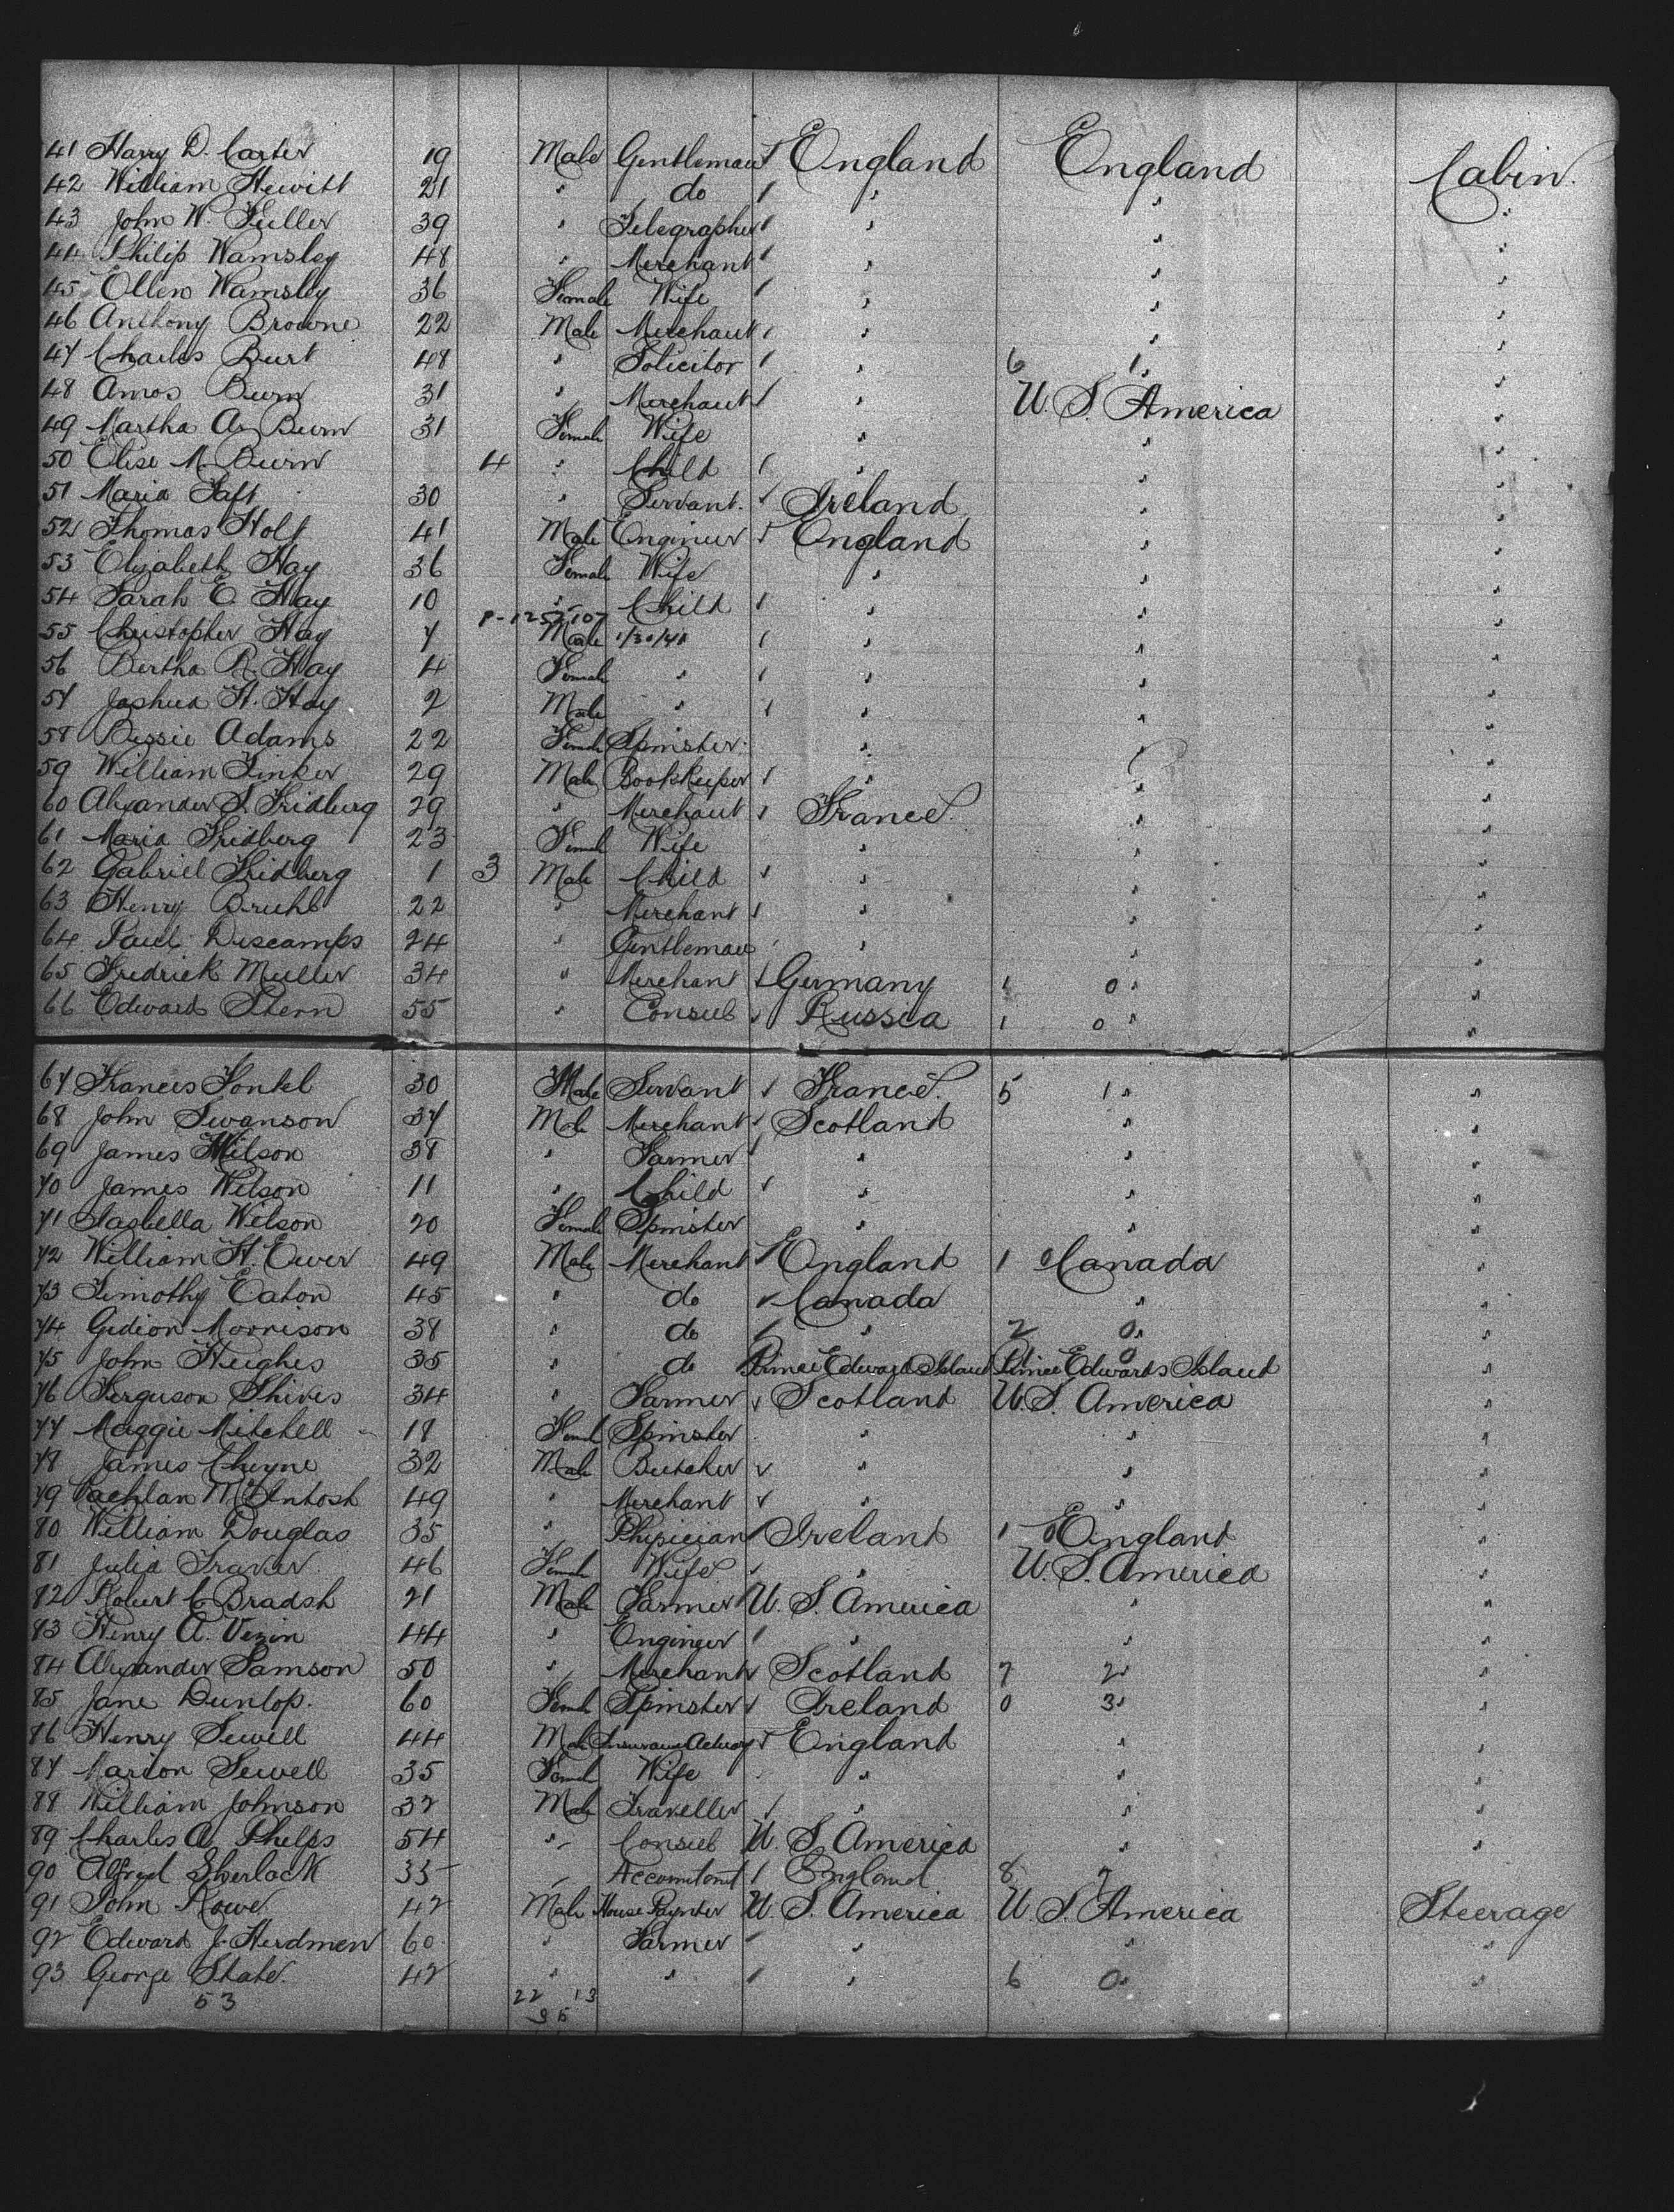 41 Harry D. Carter 19 Male Gentleman England England Cabin.
42 William Hewitt 21 " do " " "
43 John W. Fuller 39 " Telegrapher " " "
44 Philip Wamsley 48 " Merchant " " "
45 Ellen Wamsley 36 Female Wife " " "
46 Anthony Browne 22 Male Merchant " " "
47 Charles Burt 48 " Solicitor " 6 1 " "
48 Amos Burn 31 " Merchant " U. S. America "
49 Martha A. Burn 31 Female Wife " " "
50 Elise M. Burn 4 " Child " " "
51 Maria Taft 30 " Servant. Ireland " "
52 Thomas Holt 41 Male Engineer England " "
53 Elizabeth Hay 36 Female Wife " " "
54 Sarah E. Hay 10 " Child " " "
55 Christopher Hay 7 Male 1/30/41 " " "
56 Bertha R. Hay 4 Female " " " "
57 Joshua H. Hay 2 Male " " " "
58 Bessie Adams 22 Female Spinster. " " "
59 William Tinker 29 Male Bookkeeper " " "
60 Alexander S. Fridberg 29 " Merchant France. " "
61 Maria Fridberg 23 Female Wife " " "
62 Gabriel Fridberg 1 3 Male Child " " "
63 Henry Bruhl 22 " Merchant " " "
64 Paul Descamps 24 " Gentleman " " "
65 Fredrick Muller 34 " Merchant Germany 1 0 " "
66 Edward Stern 55 " Consul Russia 1 0 " "
67 Frances 30 Male Servant France. 5 1 " "
68 John Swanson 37 Male Merchant Scotland " "
69 James Wilson 38 " Farmer " " "
70 James Wilson 11 " Child " " "
71 Isabella Wilson 20 Female Spinster " " "
72 William H. Ewer 49 Male Merchant England 1 Canada "
73 Timothy Eaton 45 " do Canada " "
74 Gideon Morrison 38 " do " 2 0 " "
75 John Hughes 35 " do Prince Edward Island Prince Edwards Island "
76 Ferguson Shives 34 " Farmer Scotland U. S. America "
77 Maggie Mitchell 18 Female Spinster " " "
78 James Cheyne 32 Male Butcher " " "
79 Lachlan McIntosh 49 " Merchant " " "
80 William Douglas 35 " Physician Ireland 1 0 England "
81 Julia Traver 46 Female Wife " U. S. America "
82 Robert C Bradsh 21 Male Farmer U. S. America " "
83 Henry A. Vezin 44 " Engineer " " "
84 Alexander Samson 50 " Merchant Scotland 7 2 " "
85 Jane Dunlop. 60 Female Spinster Ireland 0 3 " "
86 Henry Sewell 44 Male Insurance Actuary England " "
87 Marion Sewell 35 Female Wife " " "
88 William Johnson 32 Male Traveller " " "
89 Charles A. Phelps 54 " Consul U. S. America " "
90 Alfred Sherlock 35 " Accountant England 8 "
91 John Rowe. 42 Male House Paynter U. S. America U. S. America Steerage
92 Edward J. Herdmen 60 " Farmer " " "
93 George State. 42 " " " 6 0 " "
53 22 13